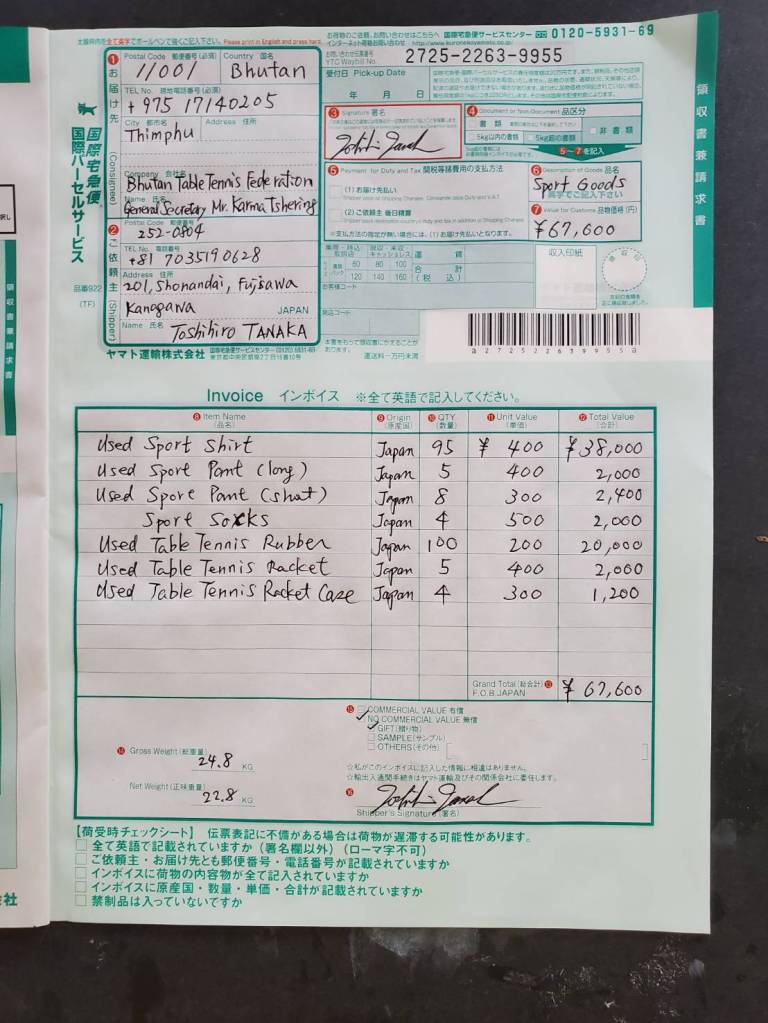 太線枠内を全て英字でボールペンで強くご記入下さい。 Please print in English and press hard.
お荷物のご相談、お問い合わせはこちらへ 国際宅急便サービスセンター 0120-5931-69
インターネット荷物お問い合わせ
お問い合わせ伝票番号
YTC Waybill No. 2725-2263-9955
受付日 Pick-up Date
年 月 日
領収書兼請求書
国際宅急便
国際パーセルサービス
品番922
(TF)
1 お届け先 (Consignee)
Postal Code 郵便番号(必須) Country 国名
11001 Bhutan
TEL No. 現地電話番号(必須)
+975 17140205
City 都市名 Address 住所
Thimphu
Company 会社名
Bhutan Table Tennis Federation
Name 氏名
General Secretary Mr. Karma Tshering
2 ご依頼主 (Shipper)
Postal Code 郵便番号
252-0804
TEL No. 電話番号
+81 7035190628
Address 住所
201, Shonandai, Fujisawa
Kanagawa JAPAN
Name 氏名 Toshihiro TANAKA
ヤマト運輸株式会社 国際宅急便サービスセンター(0120)5931-69
東京都中央区銀座2丁目16番10号
3 Signature 署名
4 Document or Non-Document 品区分
書類
非書類
5kg以内の書類 5kg超の書類
5~7を記入
5 Payment for Duty and Tax 関税等諸費用の支払方法
(1) お届け先払い
(2) ご依頼主 後日精算
※支払方法の指定が無い場合には、(1) お届け先払いとなります。
6 Description of Goods 品名
Sport Goods
英字でご記入下さい
7 Value for Customs 品物価格 (円)
¥67,600
運賃
合計
(税込)
60 80 100
120 140 160
お客様コード
収入印紙
領収印
運送料一万円未満
a272522639955a
領収書兼請求書
Invoice インボイス ※全て英語で記入してください。
8 Item Name (品名) 9 Origin (原産国) 10 QTY (数量) 11 Unit Value (単価) 12 Total Value (合計)
Used Sport Shirt Japan 95 ¥ 400 ¥38,000
Used Sport Pant (long) Japan 5 400 2,000
Used Spore Pant (shat) Japan 8 300 2,400
Sport Socks Japan 4 500 2,000
Used Table Tennis Rubber Japan 100 200 20,000
Used Table Tennis Racket Japan 5 400 2,000
Used Table Tennis Racket Case Japan 4 300 1,200
Grand Total (総合計) 13 ¥ 67,600
F.O.B.JAPAN
15 COMMERCIAL VALUE 有償
NO COMMERCIAL VALUE 無償
GIFT (贈り物)
SAMPLE (サンプル)
OTHERS (その他)
14 Gross Weight (総重量)
24.8 KG
Net Weight (正味重量)
22.8 KG
☆私がこのインボイスに記入した情報に相違はありません。
☆輸出入通関手続きはヤマト運輸及びその関係会社に委任します。
16
Shipper's Signature (署名)
【荷受時チェックシート】 伝票表記に不備がある場合は荷物が遅滞する可能性があります。
全て英語で記載されていますか (署名欄以外) (ローマ字不可)
ご依頼主・お届け先とも郵便番号・電話番号が記載されていますか
インボイスに荷物の内容物が全て記入されていますか
インボイスに原産国・数量・単価・合計が記載されていますか
禁制品は入っていないですか